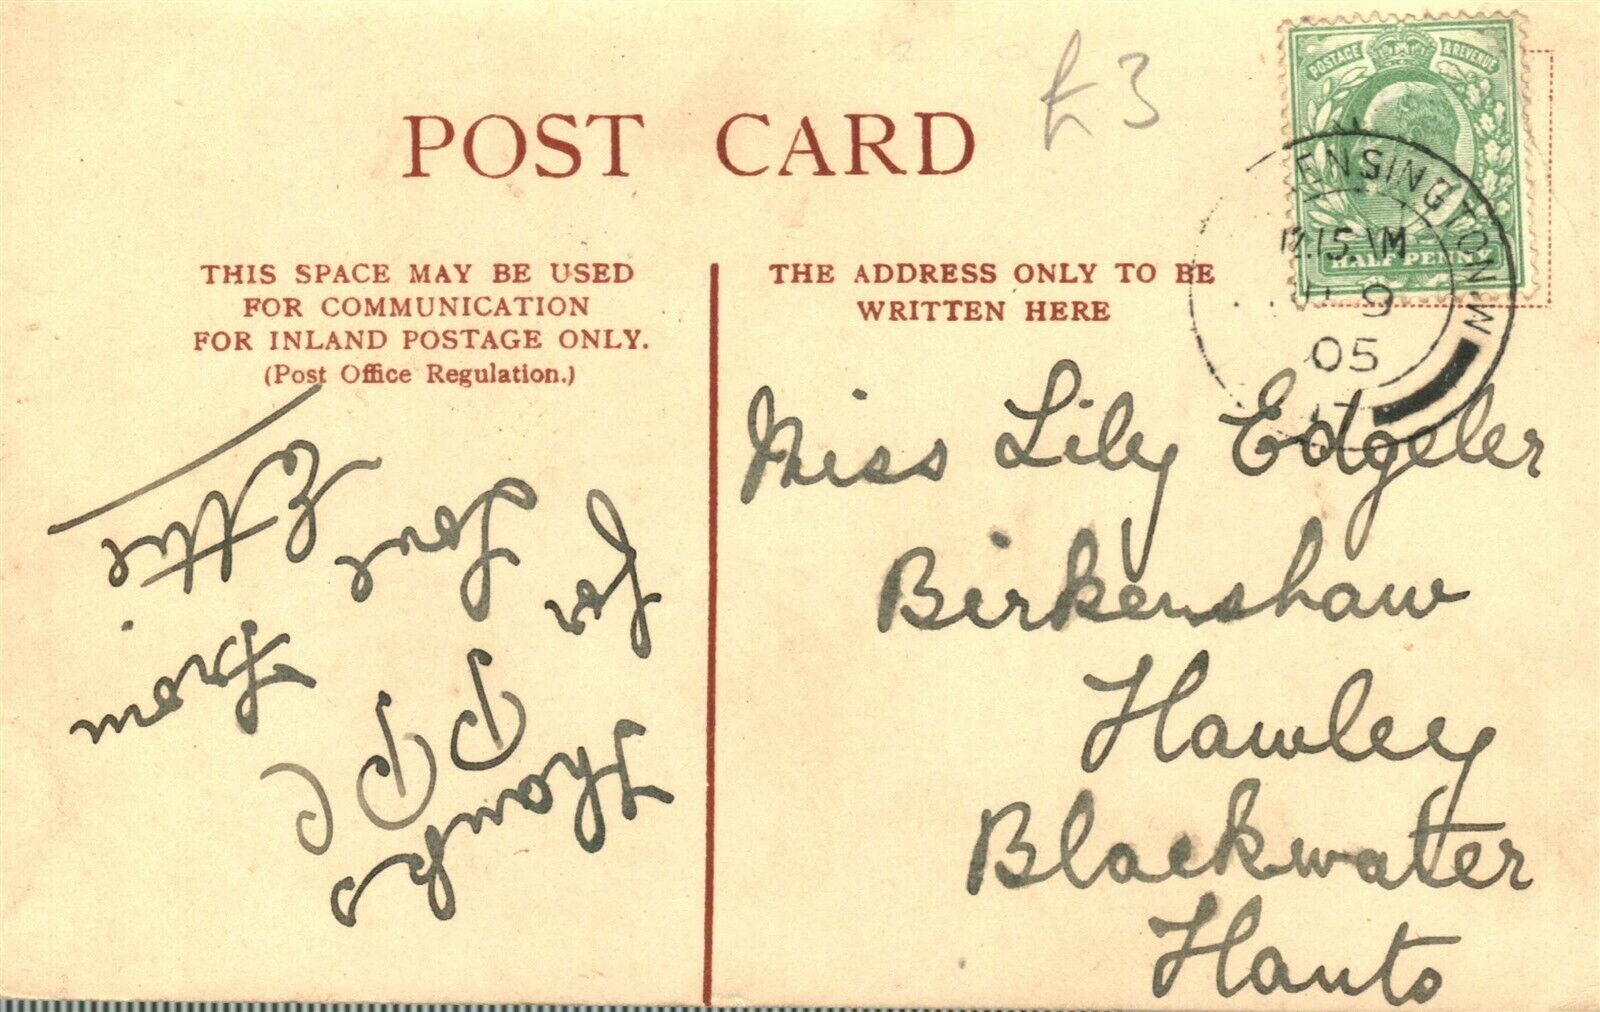 POST CARD
£3
POSTAGE & REVENUE
HALF PENNY
KENSINGTON.W
12.15.AM
9
05
17
THIS SPACE MAY BE USED
FOR COMMUNICATION
FOR INLAND POSTAGE ONLY.
(Post Office Regulation.)
Thanks
for
P P C
Love
from
Effie
THE ADDRESS ONLY TO BE
WRITTEN HERE
Miss Lily Edgeler
Birkenshaw
Hawley
Blackwater
Hants